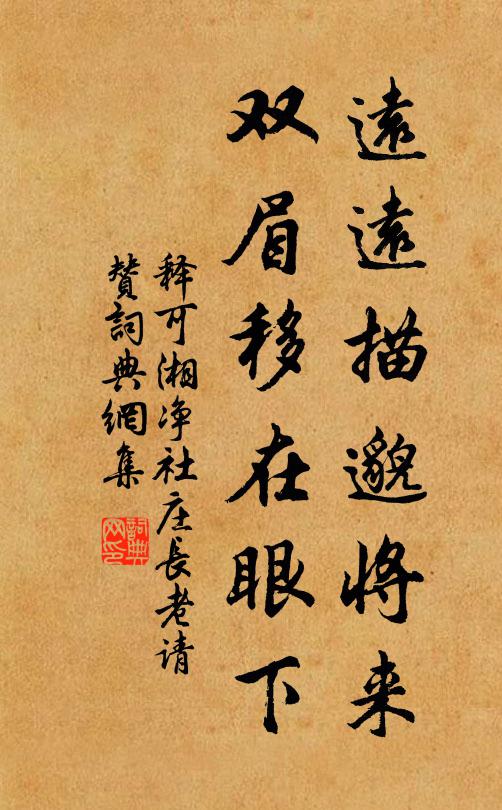 遠遠描邈将来
双眉移在眼下
释可湘净社庄長老请
赞詞典網集
詞典网印